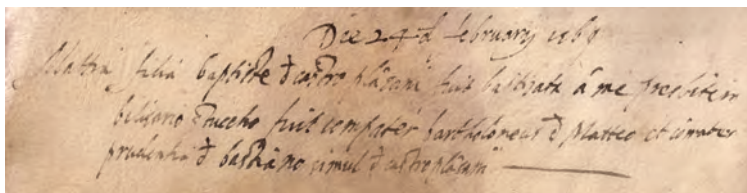 Die 24 d february 1681
Mattia filia baptiste d castro plãzani fuit batizata â me presbitero
belisario fuit compater bartholomeus d Matteo et comater
prudentia d bastiano simul d castroplãzani